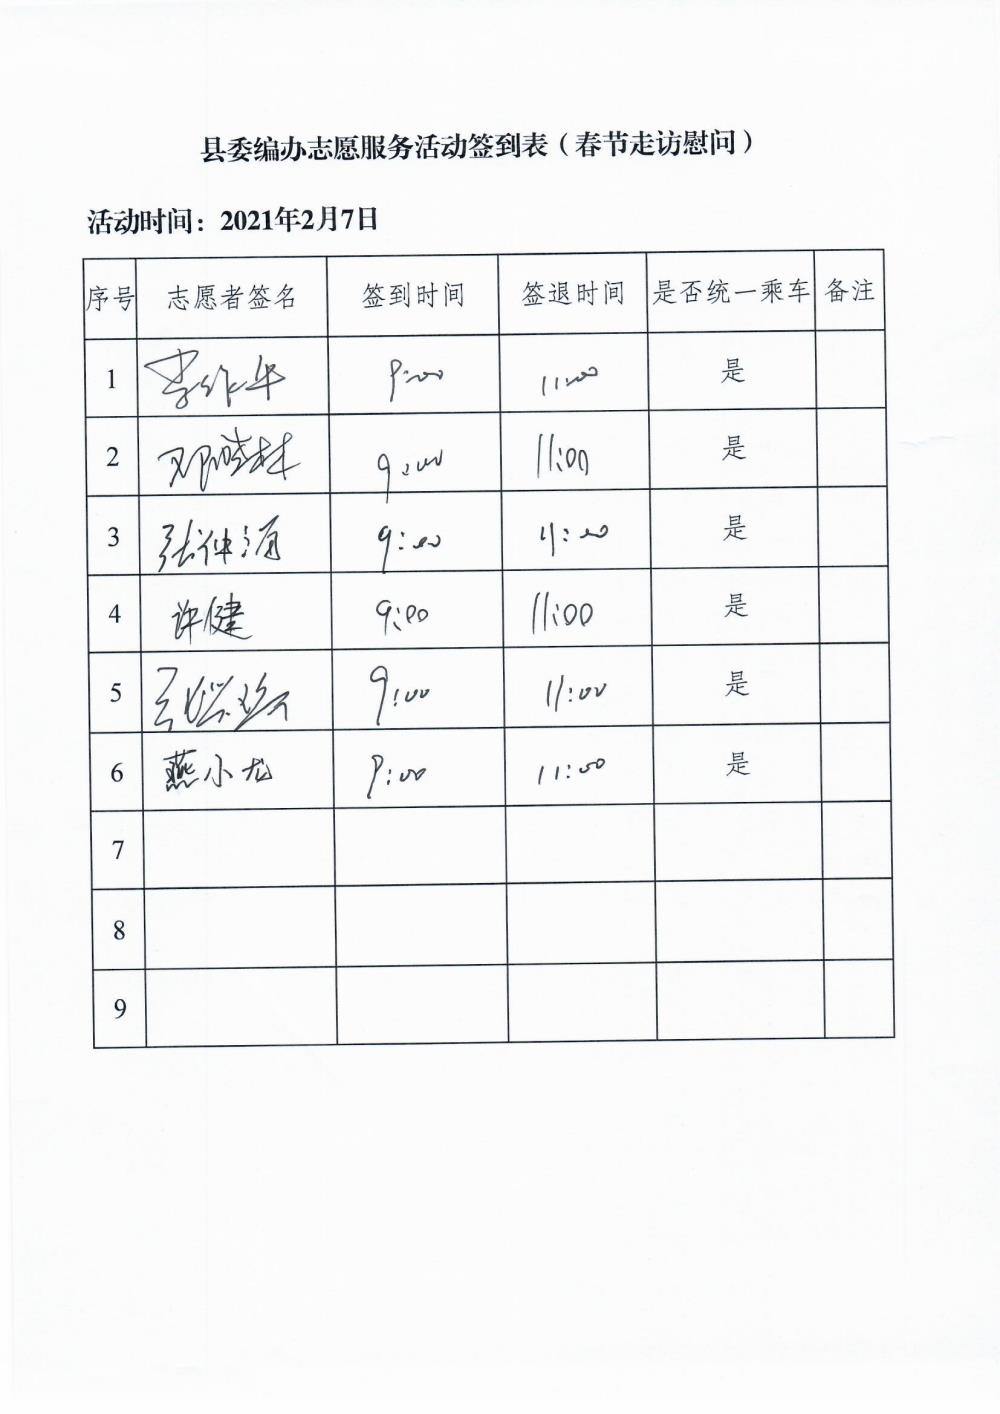 县委编办志愿服务活动签到表（春节走访慰问）
活动时间：2021年2月7日
序号 志愿者签名 签到时间 签退时间 是否统一乘车 备注
1 李作华 9:00 11:00 是
2 邓晓林 9:00 11:00 是
3 张仲海 9:00 11:00 是
4 许健 9:00 11:00 是
5 9:00 11:00 是
6 燕小龙 9:00 11:00 是
7
8
9